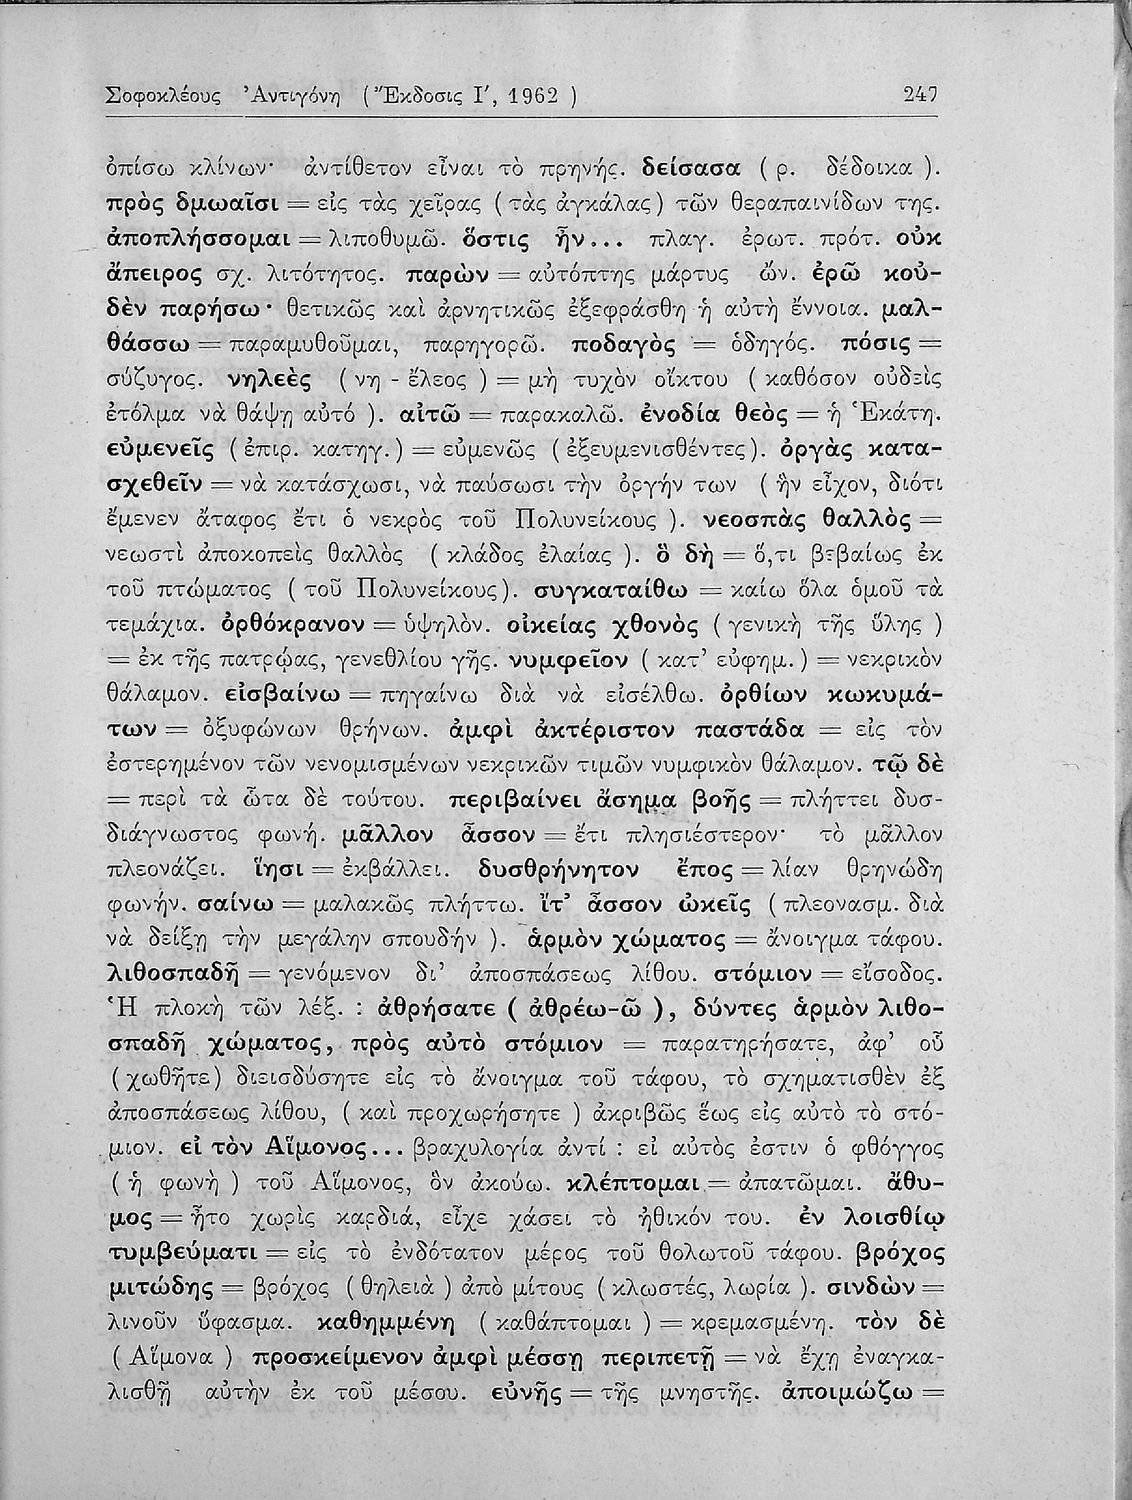 Σοφοκλέους Ἀντιγόνη ( Ἔκδοσις Ι′, 1962 ) 247
ὀπίσω κλίνων· ἀντίθετον εἶναι τὸ πρηνής. δείσασα ( ρ. δέδοικα ).
πρὸς δμωαῖσι = εἰς τὰς χεῖρας ( τὰς ἀγκάλας) τῶν θεραπαινίδων της.
ἀποπλήσσομαι = λιποθυμῶ. ὅστις ἦν... πλαγ. ἐρωτ. πρότ. οὐκ
ἄπειρος σχ. λιτότητος. παρὼν = αὐτόπτης μάρτυς ὤν. ἐρῶ κοὐ-
δὲν παρήσω· θετικῶς καὶ ἀρνητικῶς ἐξεφράσθη ἡ αὐτὴ ἔννοια. μαλ-
θάσσω = παραμυθοῦμαι, παρηγορῶ. ποδαγὸς = ὁδηγός. πόσις =
σύζυγος. νηλεὲς ( νη - ἔλεος ) = μὴ τυχὸν οἴκτου ( καθόσον οὐδεὶς
ἐτόλμα νὰ θάψῃ αὐτό ). αἰτῶ = παρακαλῶ. ἐνοδία θεὸς = ἡ Ἑκάτη.
εὐμενεῖς ( ἐπιρ. κατηγ. ) = εὐμενῶς ( ἐξευμενισθέντες). ὀργὰς κατα-
σχεθεῖν = νὰ κατάσχωσι, νὰ παύσωσι τὴν ὀργήν των ( ἣν εἶχον, διότι
ἔμενεν ἄταφος ἔτι ὁ νεκρὸς τοῦ Πολυνείκους ). νεοσπὰς θαλλὸς =
νεωστὶ ἀποκοπεὶς θαλλὸς ( κλάδος ἐλαίας ). ὃ δὴ = ὅ,τι βεβαίως ἐκ
τοῦ πτώματος ( τοῦ Πολυνείκους). συγκαταίθω = καίω ὅλα ὁμοῦ τὰ
τεμάχια. ὀρθόκρανον = ὑψηλὸν. οἰκείας χθονὸς ( γενικὴ τῆς ὕλης )
= ἐκ τῆς πατρῴας, γενεθλίου γῆς. νυμφεῖον ( κατ’ εὐφημ. ) = νεκρικὸν
θάλαμον. εἰσβαίνω = πηγαίνω διὰ νὰ εἰσέλθω. ὀρθίων κωκυμά-
των = ὀξυφώνων θρήνων. ἀμφὶ ἀκτέριστον παστάδα = εἰς τὸν
ἐστερημένον τῶν νενομισμένων νεκρικῶν τιμῶν νυμφικὸν θάλαμον. τῷ δὲ
= περὶ τὰ ὦτα δὲ τούτου. περιβαίνει ἄσημα βοῆς = πλήττει δυσ-
διάγνωστος φωνή. μᾶλλον ἆσσον = ἔτι πλησιέστερον· τὸ μᾶλλον
πλεονάζει. ἵησι = ἐκβάλλει. δυσθρήνητον ἔπος = λίαν θρηνώδη
φωνήν. σαίνω = μαλακῶς πλήττω. ἴτ’ ἆσσον ὠκεῖς ( πλεονασμ. διὰ
νὰ δείξῃ τὴν μεγάλην σπουδήν ). ἁρμὸν χώματος = ἄνοιγμα τάφου.
λιθοσπαδῆ = γενόμενον δι’ ἀποσπάσεως λίθου. στόμιον = εἴσοδος.
Ἡ πλοκὴ τῶν λέξ. : ἀθρήσατε ( ἀθρέω-ῶ ), δύντες ἁρμὸν λιθο-
σπαδῆ χώματος, πρὸς αὐτὸ στόμιον = παρατηρήσατε, ἀφ’ οὗ
( χωθῆτε) διεισδύσητε εἰς τὸ ἄνοιγμα τοῦ τάφου, τὸ σχηματισθὲν ἐξ
ἀποσπάσεως λίθου, ( καὶ προχωρήσητε ) ἀκριβῶς ἕως εἰς αὐτὸ τὸ στό-
μιον. εἰ τὸν Αἵμονος... βραχυλογία ἀντί : εἰ αὐτὸς ἐστιν ὁ φθόγγος
( ἡ φωνὴ ) τοῦ Αἵμονος, ὃν ἀκούω. κλέπτομαι = ἀπατῶμαι. ἄθυ-
μος = ἦτο χωρὶς καρδιά, εἶχε χάσει τὸ ἠθικόν του. ἐν λοισθίῳ
τυμβεύματι = εἰς τὸ ἐνδότατον μέρος τοῦ θολωτοῦ τάφου. βρόχος
μιτώδης = βρόχος ( θηλειὰ ) ἀπὸ μίτους ( κλωστές, λωρία ). σινδὼν =
λινοῦν ὕφασμα. καθημμένη ( καθάπτομαι ) = κρεμασμένη. τὸν δὲ
( Αἵμονα ) προσκείμενον ἀμφὶ μέσσῃ περιπετῆ = νὰ ἔχῃ ἐναγκα-
λισθῆ αὐτὴν ἐκ τοῦ μέσου. εὐνῆς = τῆς μνηστῆς. ἀποιμώζω =